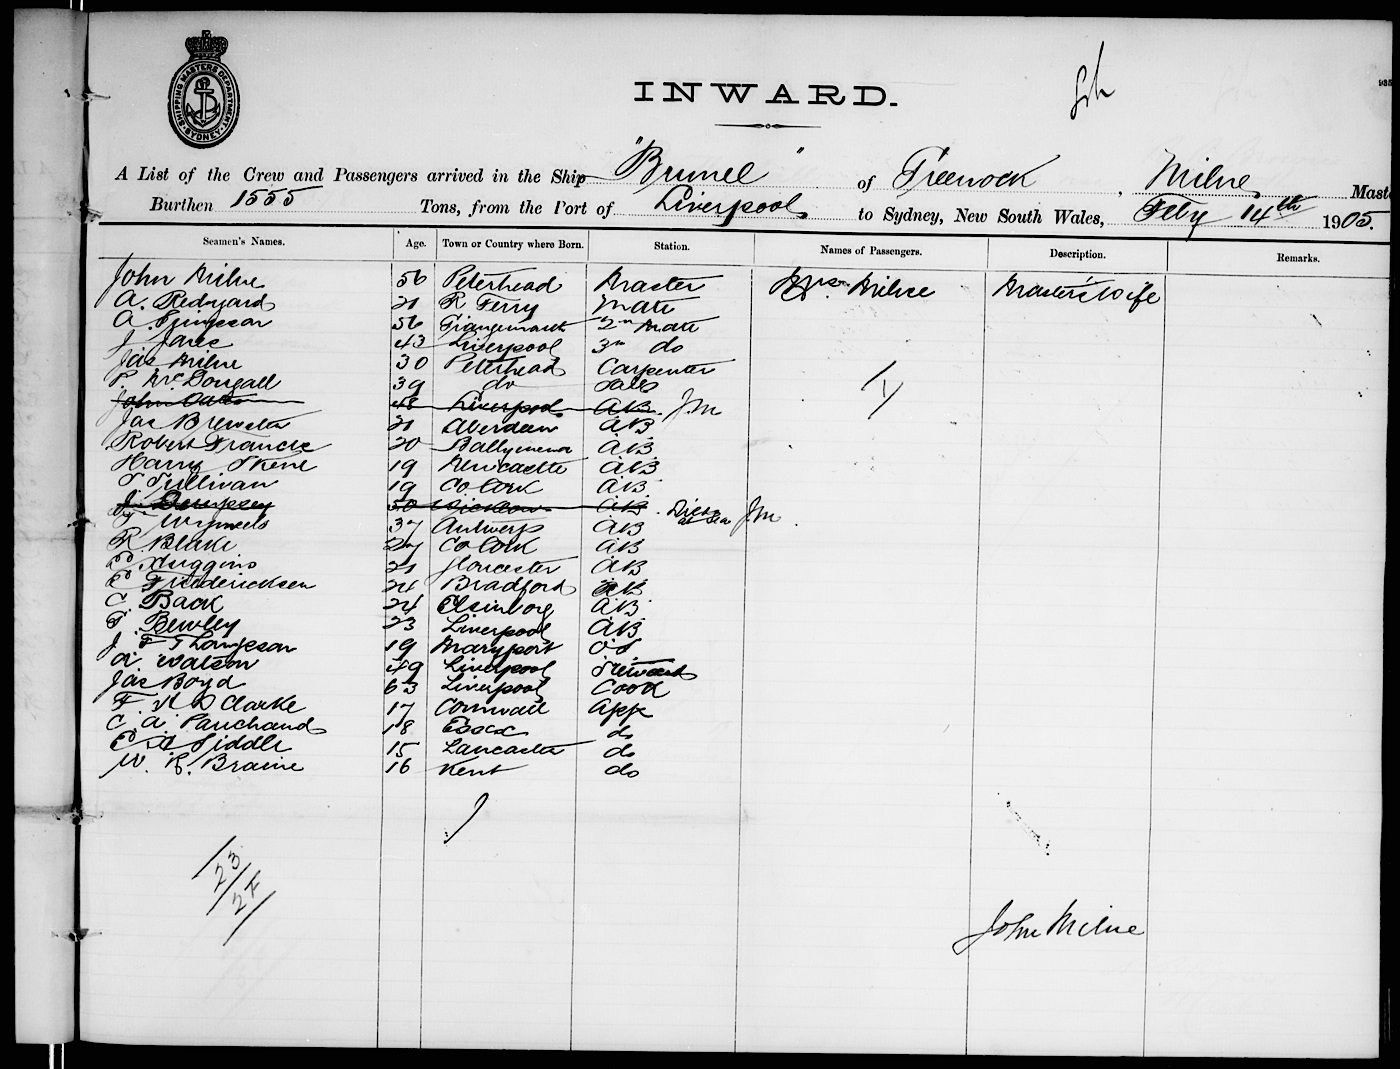 SHIPPING MASTERS DEPARTMENT SYDNEY
INWARD.
A List of the Crew and Passengers arrived in the Ship "Brunel" of Greenock, Milne, Maste
Burthen 1555 Tons, from the Port of Liverpool to Sydney, New South Wales, Feby 14th 1905.
Seamen's Names. Age. Town or Country where Born. Station. Names of Passengers. Description. Remarks.
John Milne 56 Peterhead Master Mrs Milne Master's Wife
A. Redyard 21 R. Ferry Mate
A. Simpson 56 Grangemouth 2nd Mate
J. 43 Liverpool 3rd do
Jas Milne 30 Peterhead Carpenter
P. McDougall 39 do Sails
John Oates 48 Liverpool AB. J.M
Jas Brewster 21 Aberdeen AB
Robert Francis 20 Ballymena AB
Harry Skene 19 Newcastle AB
Sullivan 19 Co Cork AB
J. Dempsey 50 Wicklow AB Died at Sea J.M.
Wymeels 37 Antwerp AB
R. Blake 27 Co Cork AB
Huggins 21 Gloucester AB
Fredericksen 24 Bradford AB
C. Back 24 Elsinborg AB
T. Bewley 23 Liverpool AB
J. F Thompson 19 Maryport OS
A. Watson 49 Liverpool Steward
Jas Boyd 63 Liverpool Cook
F. K D Clarke 17 Cornwall App
C. A. Panchaud 18 Essex do
Siddle 15 Lancaster do
W. R. Braine 16 Kent do
23
John Milne